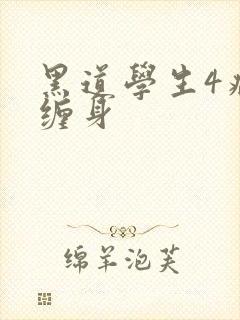 黑道學生4
缠身
绵羊泡芙